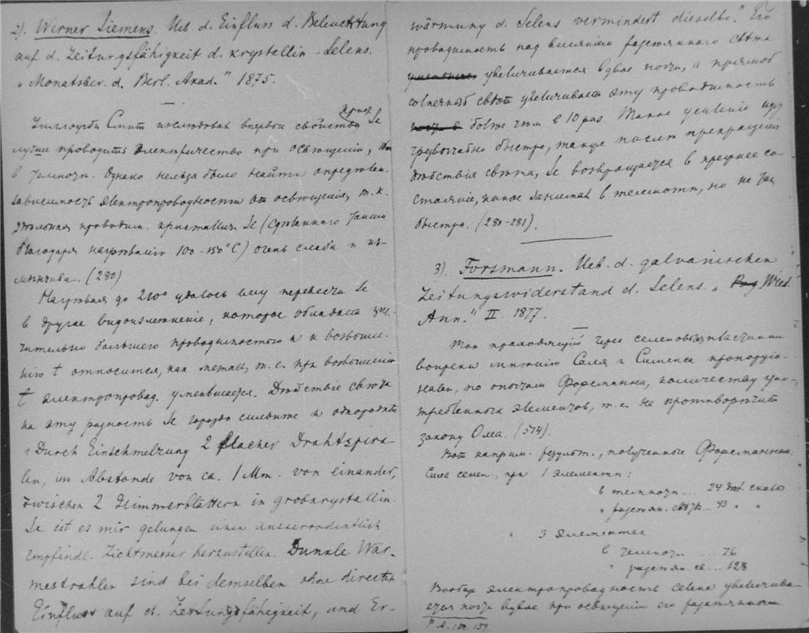 2). Werner Siemens. Ueb. d. Einfluss d. Beleuchtung
auf d. Leitungsfähigkeit d. krystallin. Selens.
„Monatsber. d. Berl. Akad." 1875.
Уиллоуби Смит впервые Se
лучше проводить электричество при освещении,
Однако нельзя было найти определен.
зависимость электропроводности от освещения, т. к.
проводим. кристаллич. Se
благодаря нагреванию 100-150°C) очень слаба и из-
менчива. (280)
Нагревая до 210° удалось ему перевести Se
в другое видоизменение, которое обладает зна-
чительно большею проводимостью и к возвыше-
нию t относится, как металл, т. е. при возвышении
t электропровод. уменьшается. Действие света
на эту разность Se гораздо сильнее и
„Durch Einschmelzung 2 flacher Drahtspira-
len, im Abstande von ca. 1 Mm. von einander,
zwischen 2 Glimmerblättern in grobkrystallin.
Se ist es mir gelungen einen ausserordentlich
empfindl. Lichtmesser herzustellen. Dunkle Wär-
mestrahlen sind bei demselben ohne directen
Einfluss auf d. Leitungsfähigkeit, und Er-
wärmung d. Selens vermindert dieselbe." Его
проводимость под влиянием рассеянного света
увеличивается вдвое почти, а прямой
солнечной свет увеличивает эту проводимость
более чем в 10 раз. Такое усиление идет
чрезвычайно быстро, также после прекращения
действия света, Se возвращается в прежнее со-
стояние, какое занимал в темноте, но не так
быстро. (280-281).
3). Forssmann. Ueb. d. galvanischen
Leitungswiderstand d. Selens. „Wied.
Ann." II. 1877.
Ток проходящий через селеновые пластинки
вопреки мнению Саля и Сименса пропорцио-
нален, по опытам Форсмана, количеству упо-
требленных элементов, т. е. не противоречит
закону Ома. (514).
Вот наприм. результ., полученные Форсманном.
Сила селен. при 1 элементе:
в темноте ... 24
„ рассеян. свете .. 43 „ „
„ 3 элементах
в темноте .... 76
„ рассеян. св. ... 128
Вообще электропроводность селена увеличива-
ется почти вдвое при освещении его рассеянным